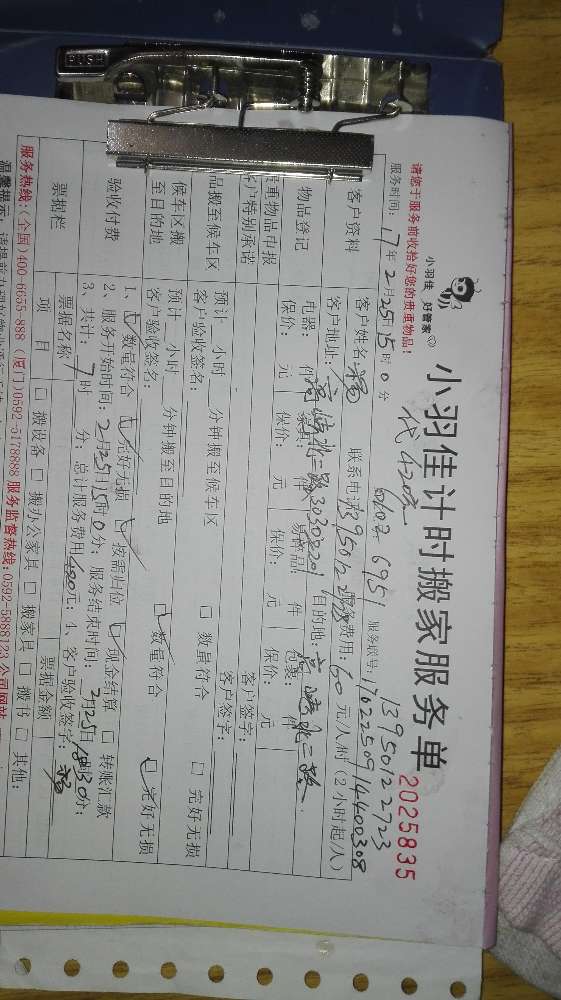 PUSH
小羽佳 好管家
小羽佳计时搬家服务单
2025835
代420元
13950122723
请您于服务前收拾好您的贵重物品！
服务时间：17年2月25日15时0分
6951
服务联号：1702250914400308
客户资料
客户姓名：
联系电话
服务费用：60元/人/时（2小时起/人）
客户地址：高崎北二路303
目的地：高崎北二路
物品登记
电器： 件
家具： 件
易碎品： 件
包装： 件
保价： 元 保价： 元 保价： 元 保价： 元
贵重物品申报
客户特别承诺
客户签字：
客户签字：
品搬至候车区
预计 小时 分钟搬至候车区
□ 数量符合 □ 完好无损
客户验收签名：
候车区搬至目的地
预计 小时 分钟搬至目的地
数量符合 完好无损
客户验收签名：
验收付费
1、数量符合 完好无损 按需归位 现金结算 □ 转账汇款
2、服务开始时间：2月25日15时0分；服务结束时间：2月25日18时30分；
3、共计：7时 分；总计服务费用420元；4、客户验收签字：
票据栏
票据名称
票据金额
项 目
□ 搬设备 □ 搬办公家具 □ 搬家具 □ 搬书 □ 其他：
服务热线：(全国)400-6655-888 (厦门)0592-5178888 服务监督热线：0592-5888123 公司网站
温馨提示：请提前办理好物业